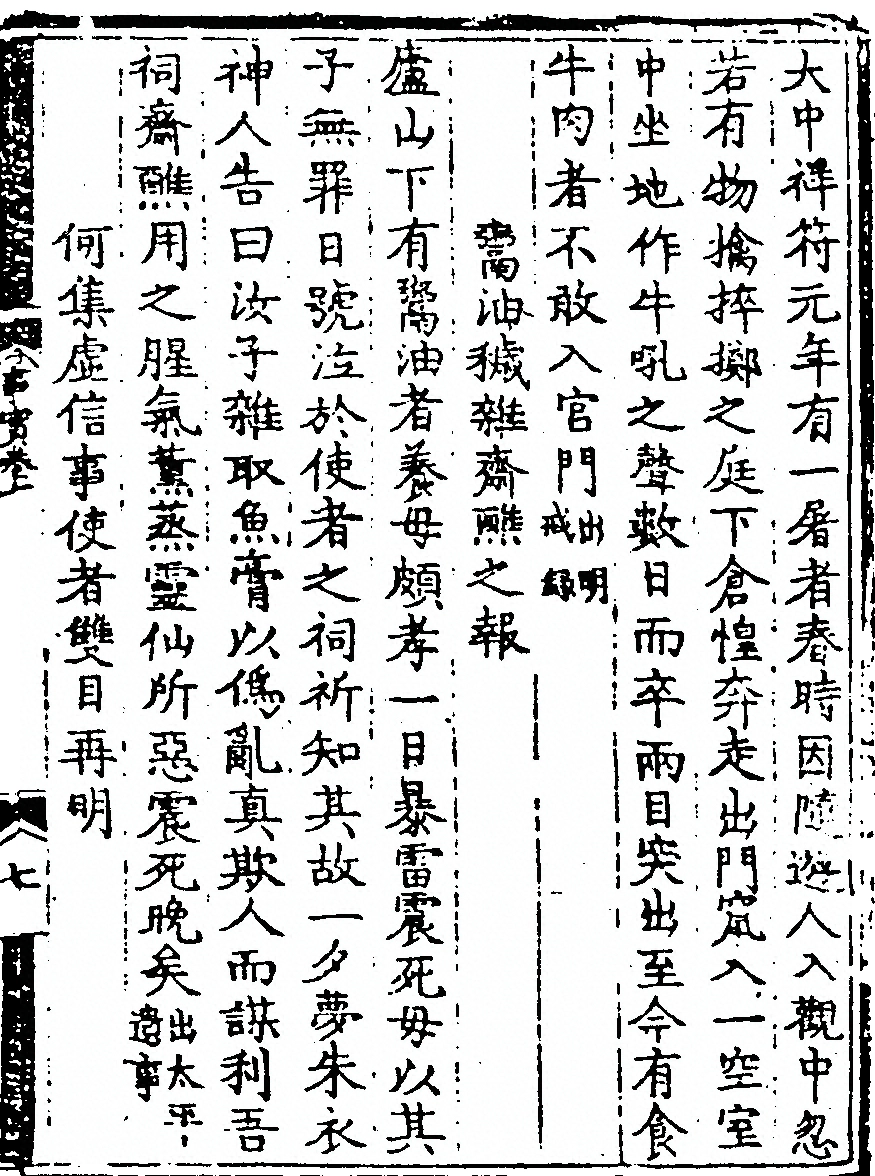 大中祥符元年有一屠者春時因隨遊人入觀中忽
若有物擒捽擲之庭下倉惶奔走出門竄入一空室
中坐地作牛吼之聲數日而卒兩目突出至今有食
牛肉者不敢入官門出明戒錄
鬻油穢雜齋醮之報
廬山下有鬻油者養母頗孝一日暴雷震死母以其
子無罪日號泣於使者之祠祈知其故一夕夢朱衣
神人告曰汝子雜取魚膏以偽亂真欺人而謀利吾
祠齋醮用之腥氣薰蒸靈仙所惡震死晚矣出太平遺事
何集虛信事使者雙目再明
事實卷上
七